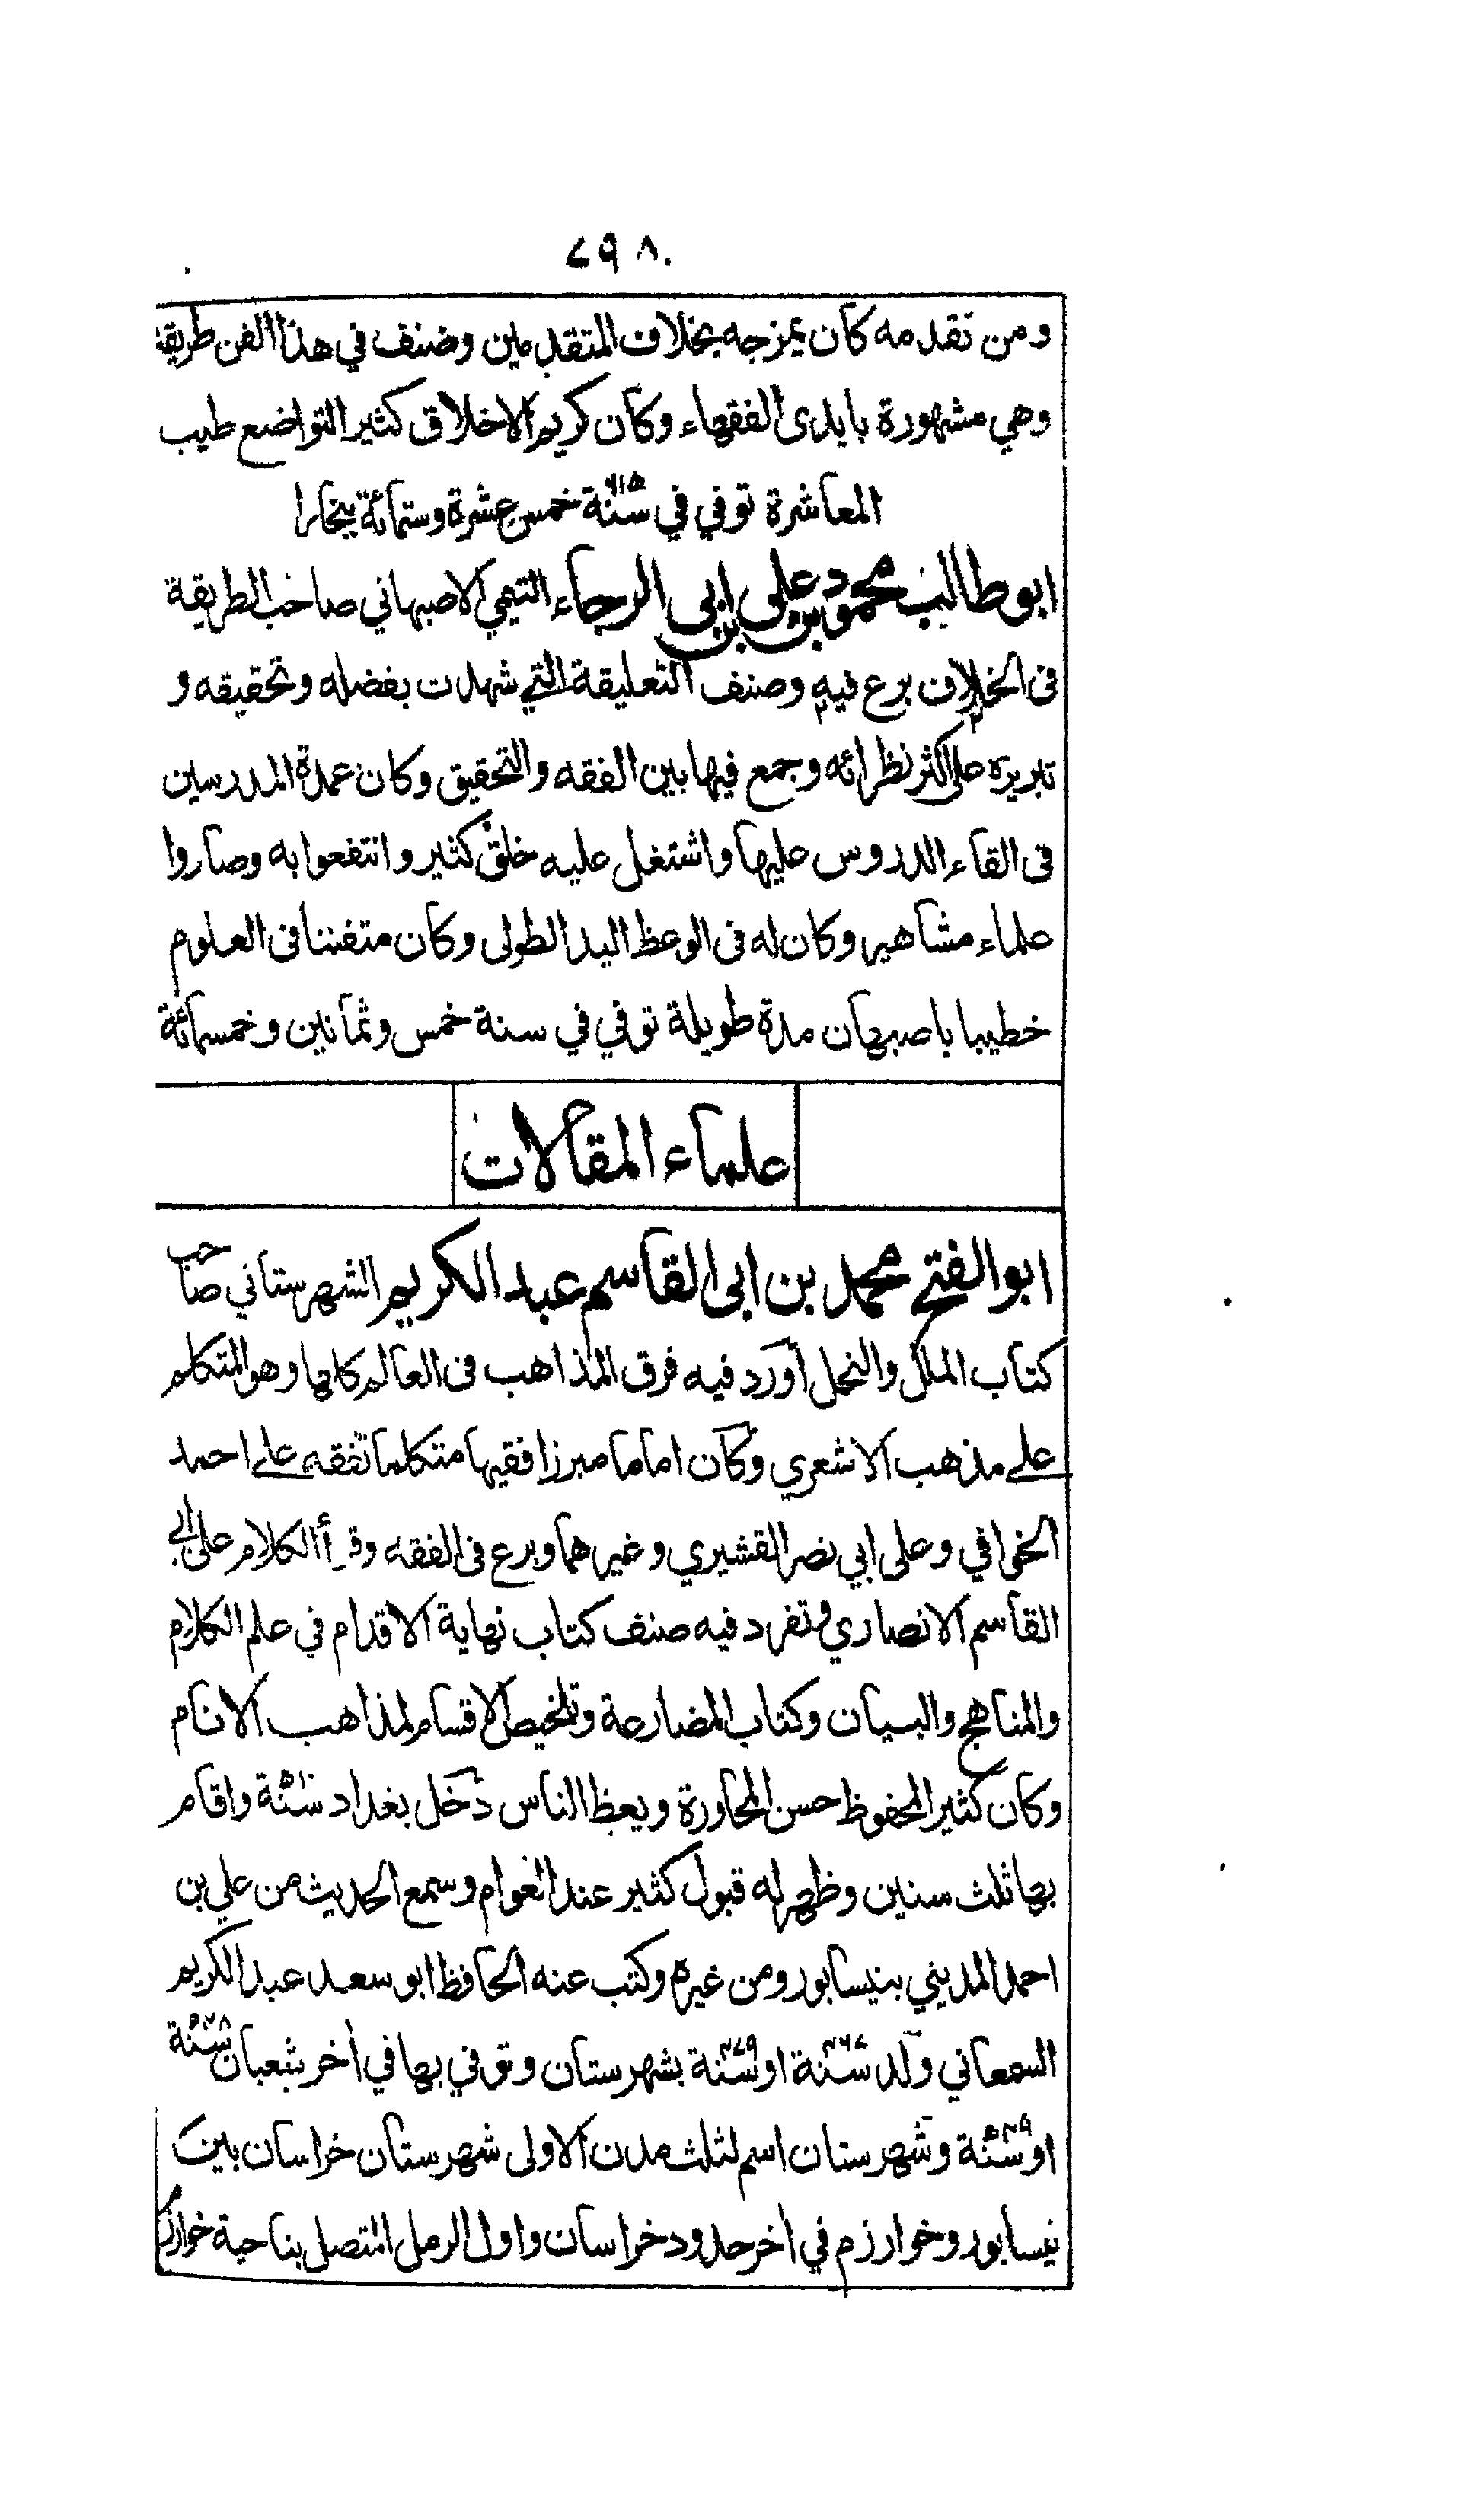 ٧٩٨
ومن تقدمه كان يمزجه بخلاف المتقدمين وصنف في هذا الفن طريقة
وهي مشهورة بايدى الفقهاء وكان كريم الاخلاق كثير التواضع طيب
المعاشرة توفي في سنة ٦١٥ خمس عشرة وستمائة ببخارا
ابو طالب محمود بن علی بن ابی الرجاء التيمي الاصبهاني صاحب الطريقة
فى الخلاف برع فيه وصنف التعليقة التي شهدت بفضله وتحقيقه و
تبريزه على اكثر نظرائه وجمع فيها بين الفقه والتحقيق وكان عمدة المدرسين
فى القاء الدروس عليها واشتغل عليه خلق كثير وانتفعوا به وصاروا
علماء مشاهير وكان له فى الوعظ اليد الطولى وكان متفننا فى العلوم
خطيبا باصبهان مدة طويلة توفي في سنة خمس وثمانين وخمسمائة
علماء المقالات
ابو الفتح محمد بن ابی القاسم عبد الكريم الشهرستاني صاحب
كتاب الملل والنحل أورد فيه فرق المذاهب فى العالم كلها وهو المتكلم
علے مذهب الاشعري وكان اماما مبرزا فقيها متكلما تفقه علے احمد
الخوافي وعلى ابي نصر القشيري وغيرهما وبرع فى الفقه وقرأ الكلام على ابي
القاسم الانصاري وتفرد فيه صنف كتاب نهاية الاقدام في علم الكلام
والمناهج والبيان وكتاب المضارعة وتلخيص الاقسام لمذاهب الانام
وكان كثير المحفوظ حسن المحاورة ويعظ الناس دخل بغداد سنة واقام
بها ثلث سنين وظهر له قبول كثير عند العوام وسمع الحديث من علي بن
احمد المديني بنيسابور ومن غيره وكتب عنه الحافظ ابو سعد عبد الكريم
السمعاني ولد سنة ٤٦٧ او سنة ٤٧٩ بشهرستان وتوفي بها في أخر شعبان سنة ٥٤٨
او سنة ٥٤٩ وشهرستان اسم لثلث مدن الاولى شهرستان خراسان بين
نيسابور وخوارزم في أخر حدود خراسان واول الرمل المتصل بناحية خوارزم